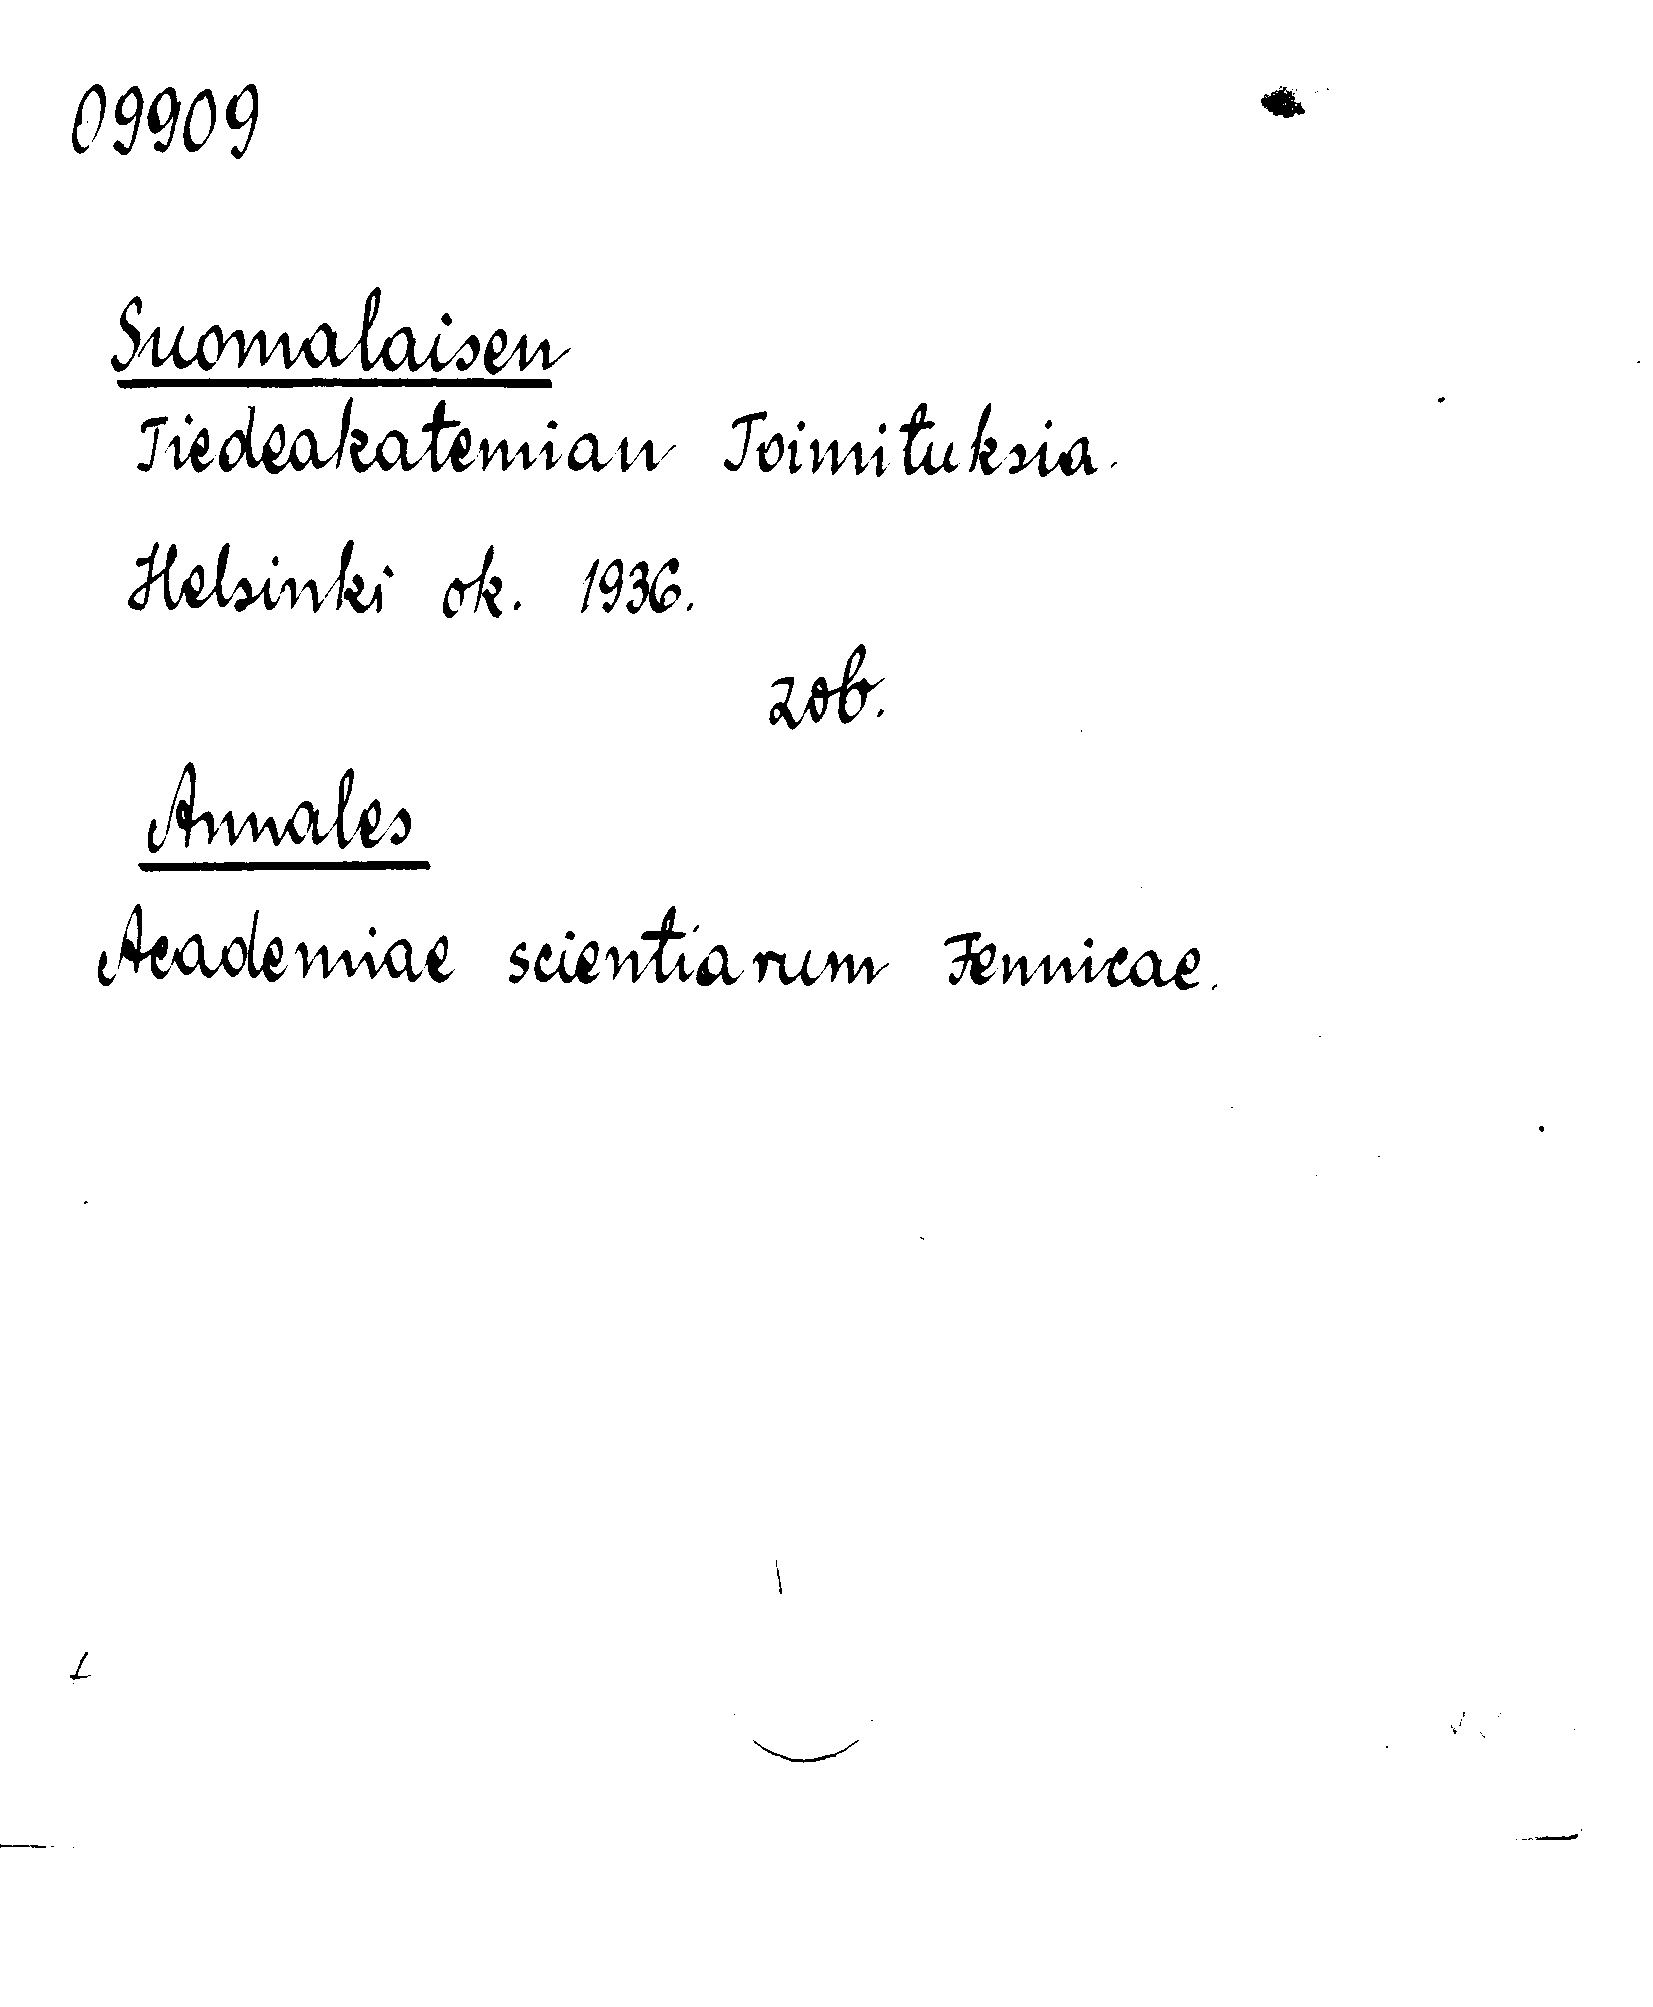 09909
Suomalaisen
Tiedeakatemian Toimituksia.
Helsinki ok. 1936.
zob.
Annales
Academiae scientiarum Fennicae.